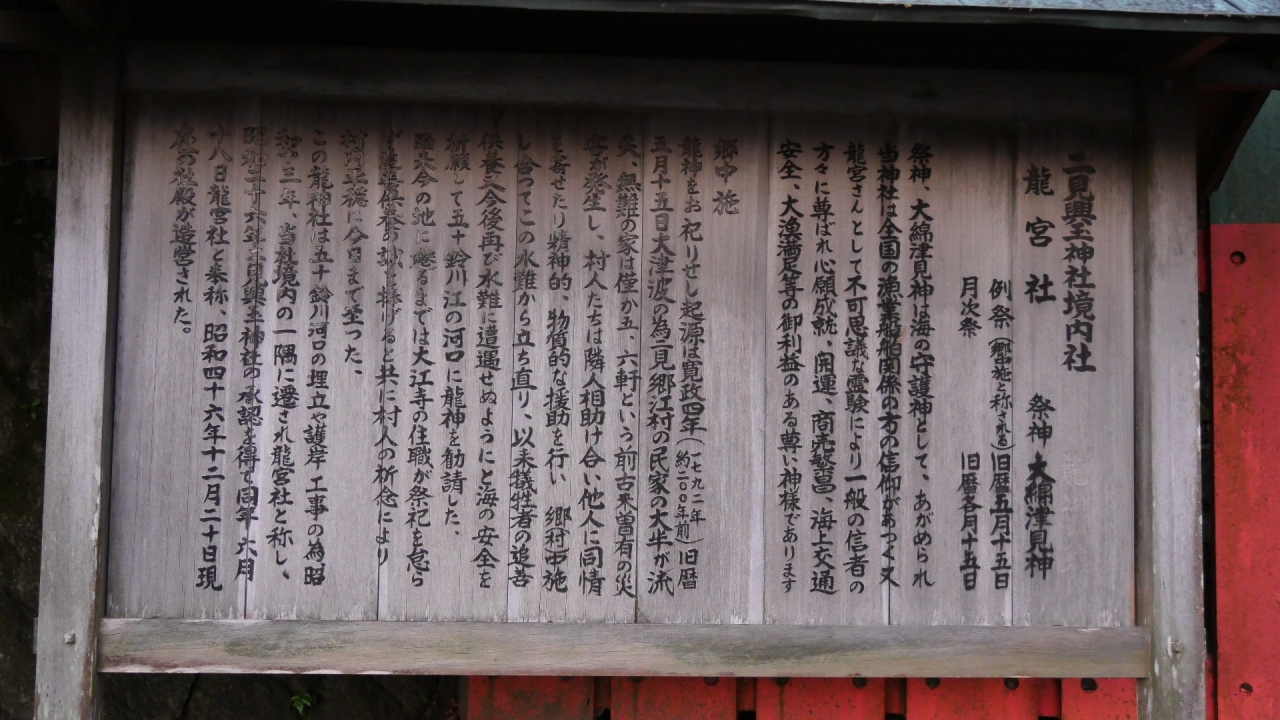 二見興玉神社境内社
龍宮社 祭神 大綿津見神
例祭(郷中施と称される)旧暦五月十五日
月次祭 旧暦各月十五日
祭神、大綿津見神は海の守護神として、あがめられ
当神社は全国の漁業船舶関係の方の信仰があつく又
龍宮さんとして不可思議な霊験により一般の信者の
方々に尊ばれ心願成就、開運、商売繁昌、海上交通
安全、大漁満足等の御利益のある尊い神様であります
郷中施
龍神をお祀りせし起源は寛政四年(一七九二年 約二〇〇年前)旧暦
五月十五日大津波の為二見郷江村の民家の大半が流
失、無難の家は僅か五、六軒という前古未曽有の災
害が発生し、村人たちは隣人相助け合い他人に同情
を寄せたり精神的、物質的な援助を行い 郷村中施
し合つてこの水難から立ち直り、以来犠牲者の追善
供養又今後再び水難に遭遇せぬようにと海の安全を
祈願して五十鈴川江の河口に龍神を勧請した、
爾来今の地に遷るまでは大江寺の住職が祭祀を怠ら
ず追善供養の誠を捧げると共に村人の祈念により
村内平穏に今日まで至った、
この龍神社は五十鈴川河口の埋立や護岸工事の為昭
和十三年、当社境内の一隅に遷され龍宮社と称し、
昭和二十六年二見興玉神社の承認を得て同年六月
十八日龍宮社と奉称、昭和四十六年十二月二十日現
在の社殿が造営された。